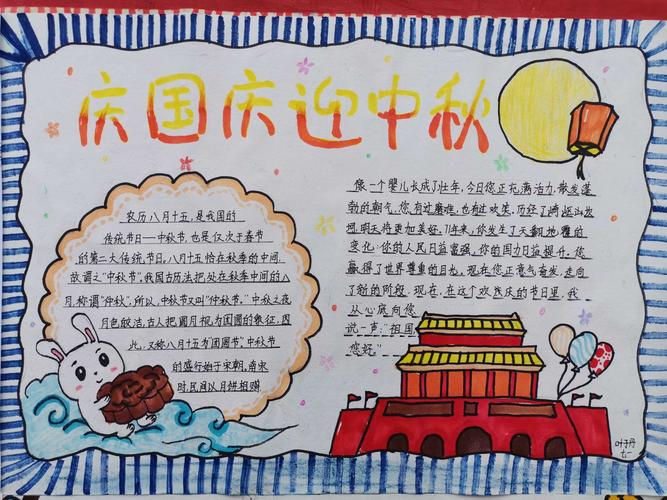 庆国庆迎中秋
农历八月十五,是我国的
传统节日——中秋节,也是仅次于春节
的第二大传统节日。八月十五恰在秋季的中间,
故谓之“中秋节”。我国古历法把处在秋季中间的八
月,称谓“仲秋”,所以,中秋节又叫“仲秋节。”中秋之夜
月色皎洁,古人把圆月视为团圆的象征,因
此,又称八月十五为“团圆节”。中秋节
的盛行始于宋朝,南宋
时,民间以月饼相赠
像一个婴儿长成了壮年,今日您正充满活力,散发蓬
勃的朝气。您有过磨难,也有过欢笑,历经了崎岖与坎
坷,明天将更加美好。71年来,你发生了天翻地覆的
变化:你的人民日益富强,你的国力日益提升。您
赢得了世界尊重的目光。现在,您正意气奋发,走向
了新的阶段。现在,在这个欢庆的节日里,我
从心底向您
说一声:“祖国
您好。”
叶于丹
七一